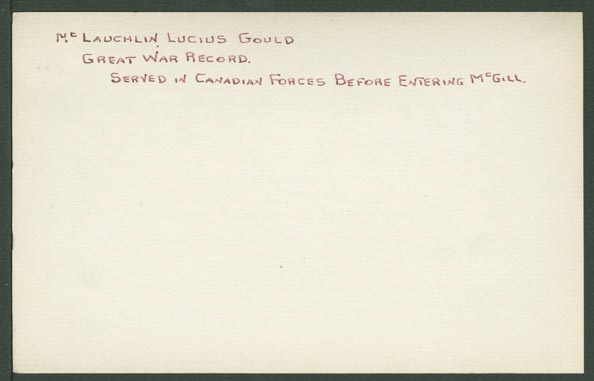 McLauchlin, Lucius Gould
Great War Record.
Served in Canadian Forces Before Entering McGill.